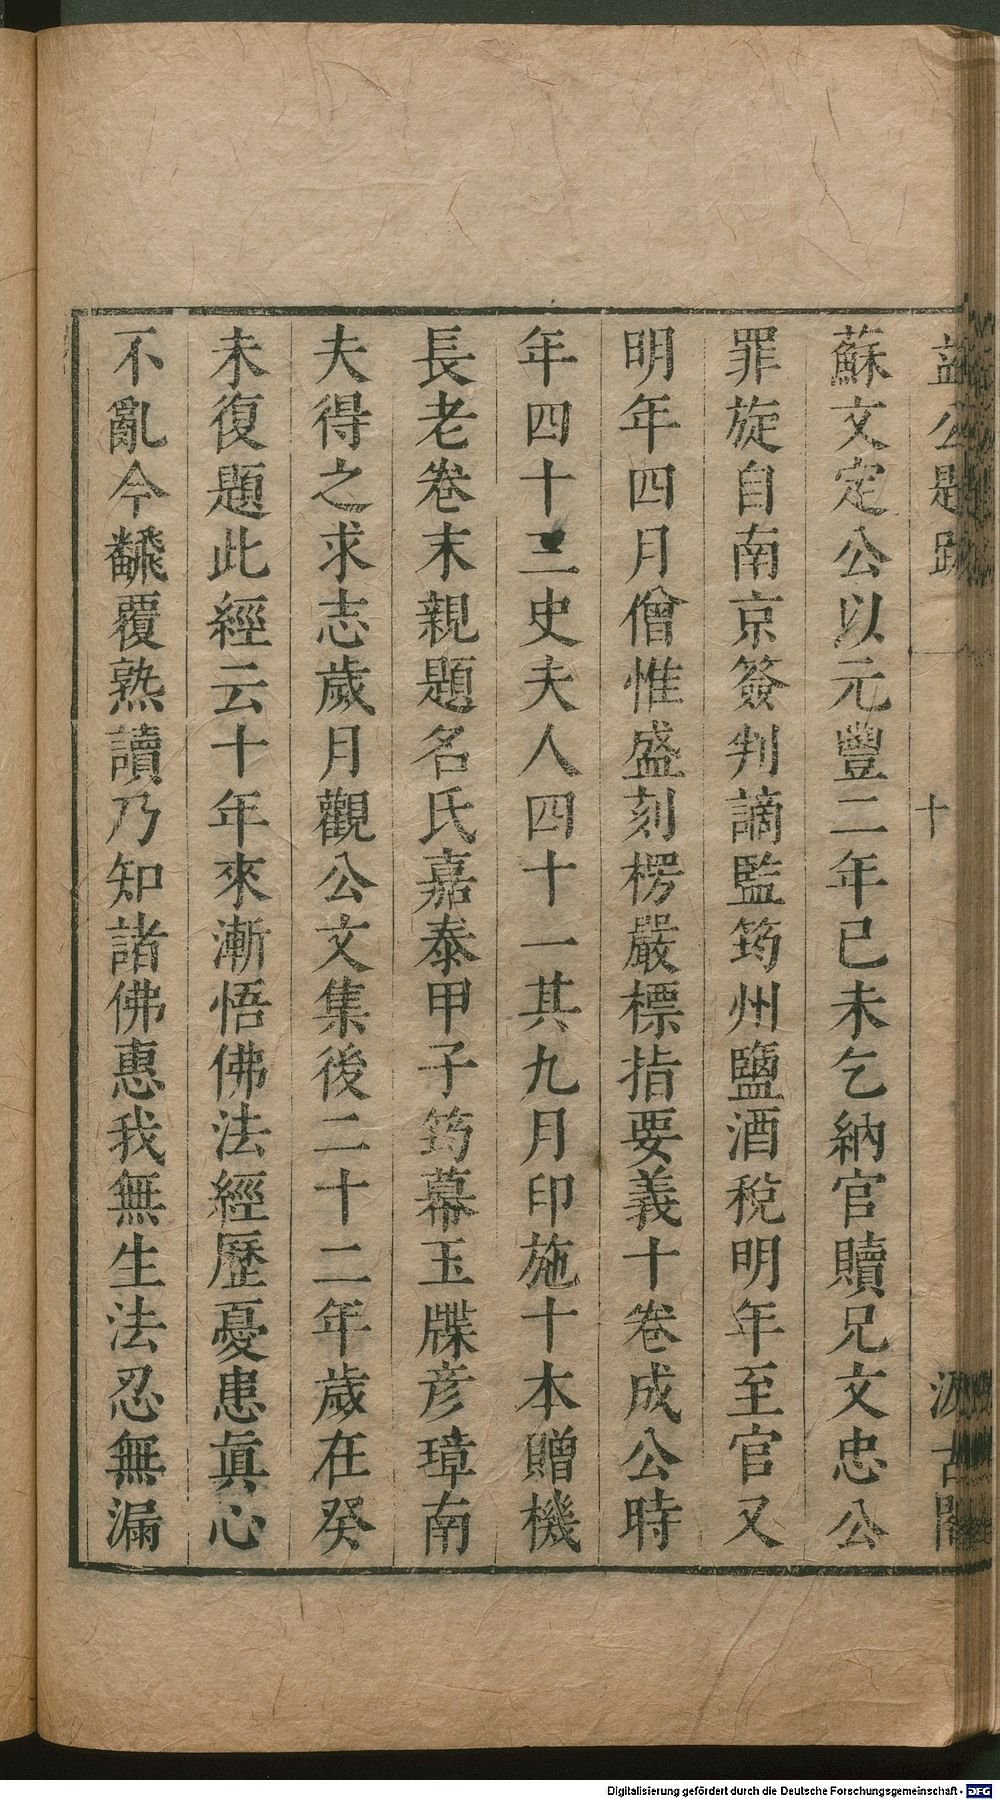 益公題跋 十 汲古閣
蘇文定公以元豐二年已未乞納官贖兄文忠公
罪旋自南京簽判謫監筠州鹽酒稅明年至官又
明年四月僧惟盛刻楞嚴標指要義十卷成公時
年四十三史夫人四十一其九月印施十本贈機
長老卷末親題名氏嘉泰甲子筠幕玉牒彥璋南
夫得之求志歲月觀公文集後二十二年歲在癸
未復題此經云十年來漸悟佛法經歷憂患眞心
不亂今飜覆熟讀乃知諸佛惠我無生法忍無漏
Digitalisierung gefördert durch die Deutsche Forschungsgemeinschaft - DFG